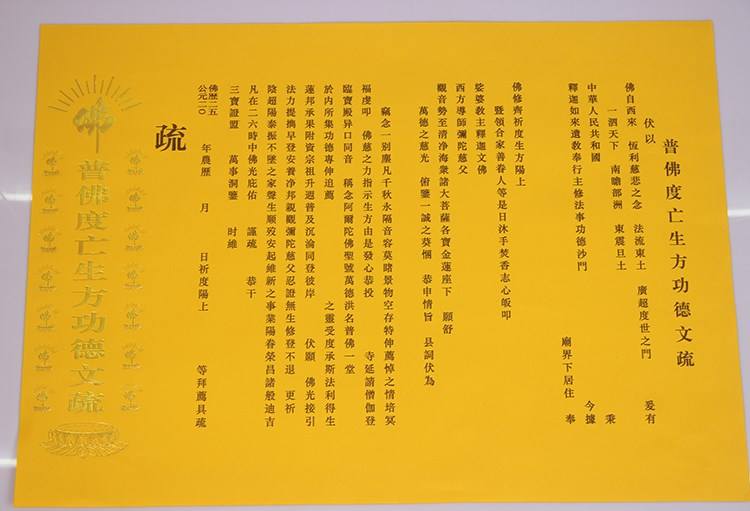 普佛度亡生方功德文疏
伏以
佛自西來 恆利慈悲之念 法流東土 廣超度世之門 爰有
一泗天下 南贍部洲 東震旦土 秉
中華人民共和國 今據
釋迦如來遺教奉行主修法事功德沙門
廟界下居住 奉
佛修齊祈度生方陽上
暨領合家善眷人等是日沐手焚香志心皈叩
娑婆教主釋迦文佛
西方導師彌陀慈父
觀音勢至清净海衆諸大菩薩各寶金蓮座下 願舒
萬德之慈光 俯鑒一誠之葵悃 恭申情旨 具詞伏為
竊念一别塵凡千秋永隔音容莫睹景物空存特伸薦悼之情培冥
福虔叩 佛慈之力指示生方由是發心恭投 寺延請僧伽登
臨寶殿异口同音 稱念阿爾陀佛聖號萬德洪名普佛一堂
於内所集功德專伸追薦 之靈受度承斯法利得生
蓮邦承果附資宗祖升遐普及沉淪同登彼岸 伏願 佛光接引
法力提携早登安養净邦親觀彌陀慈父忍證無生修登不退 更祈
陰超陽泰振不墜之家聲生顺殁安起維新之事業陽眷榮昌諸般迪吉
凡在二六時中佛光庇佑 謹疏 恭干
三寶證盟 萬事洞鑒 时維
佛歷二五
公元二〇 年農歷 月 日祈度陽上 等拜薦具疏
疏
佛
普佛度亡生方功德文疏